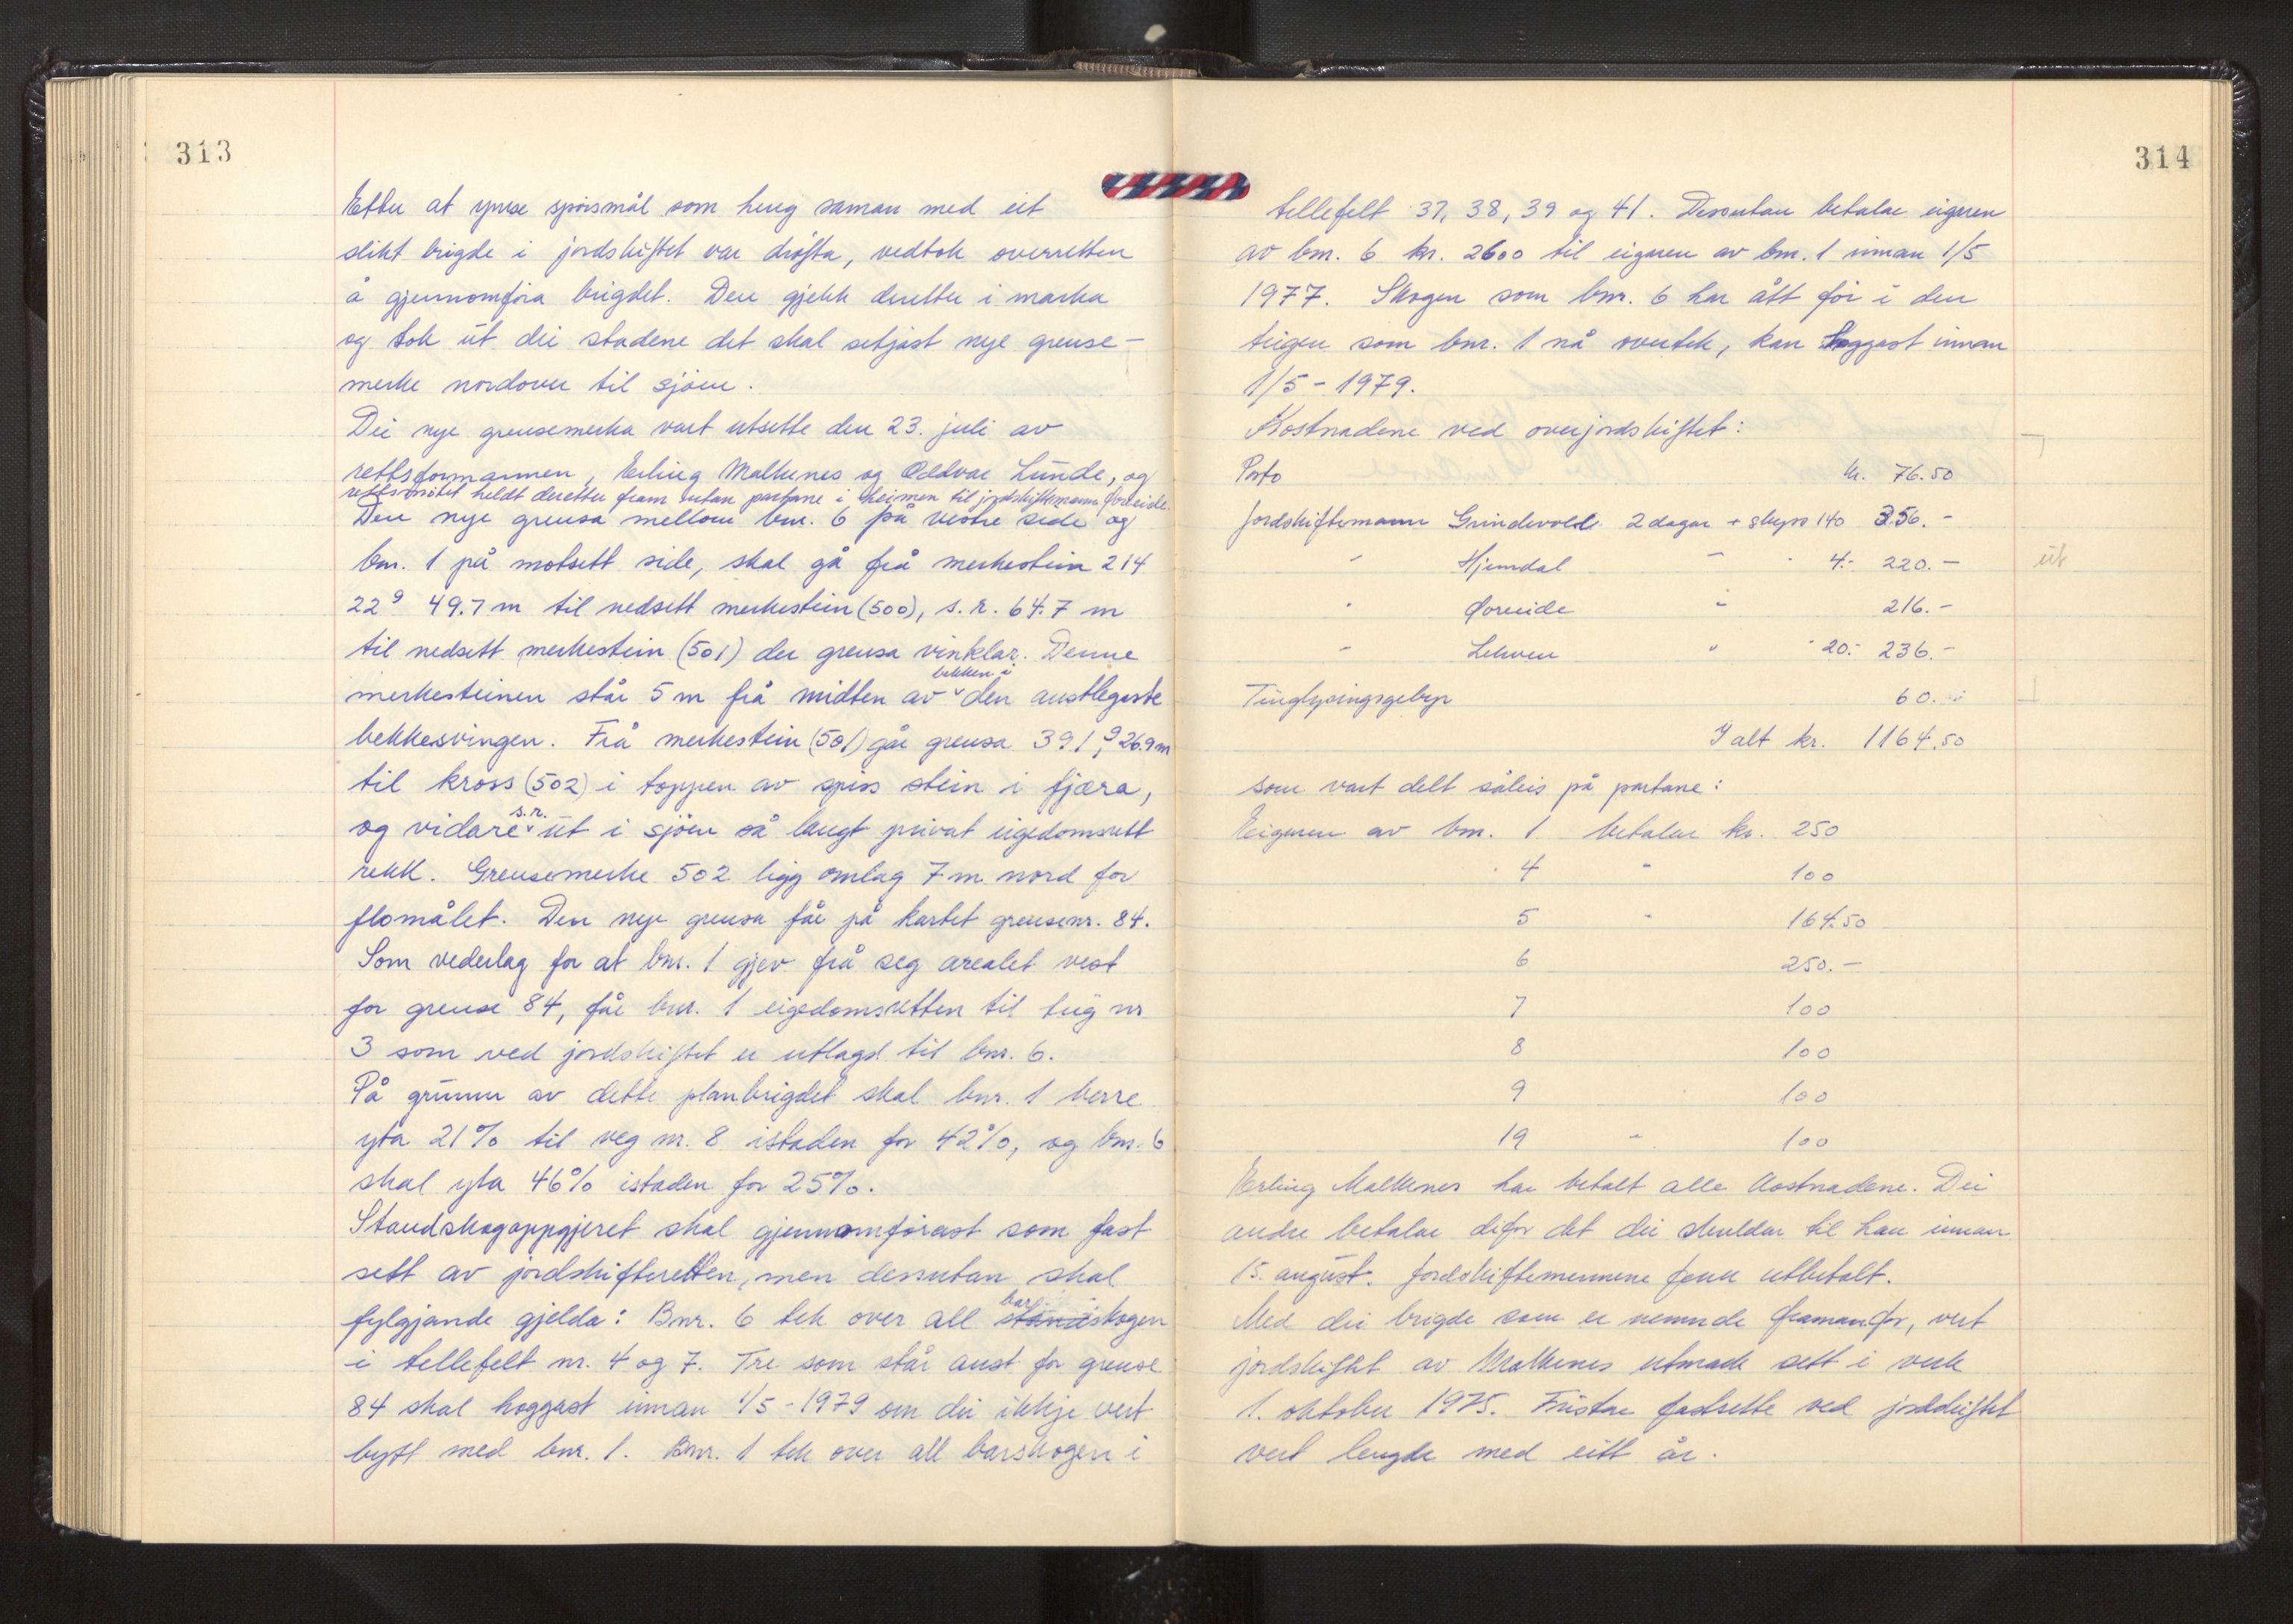 313
Etter at ymse spörsmål som heng saman med eit
slikt brigde i jordskiftet var dröfta, vedtok overretten
å gjennomföra brigdet. Den gjekk deretter i marka
og tok ut dei stadene det skal setjast nye grense-
merke nordover til sjöen.
Dei nye grensemerka vart utsette den 23. juli av
rettsformannen, Erling Malkenes og Oddvar Lunde, og
rettsmötet heldt deretter fram utan partane i heimen til jordskiftemann Föreide.
Den nye grensa mellom bnr. 6 på vestre side og
bnr. 1 på motsett side, skal gå frå merkestein 214
22g 49.7 m til nedsett merkestein (500), s.r. 64.7 m
til nedsett merkestein (501) der grensa vinklar. Denne
bekken i
merkesteinen står 5 m frå midten av den austlegaste
bekkesvingen. Frå merkestein (501) går grensa 39.1g, 26.9 m
til kross (502) i toppen av spiss stein i fjæra,
s.r.
og vidare ut i sjöen så langt privat eigedomsrett
rekk. Grensemerke 502 ligg omlag 7 m nord for
flomålet. Den nye grensa får på kartet grensenr. 84.
Som vederlag for at bnr. 1 gjev frå seg arealet vest
for grense 84, får bnr. 1 eigedomsretten til teig nr
3 som ved jordskiftet er utlagd til bnr. 6.
På grunn av dette planbrigdet skal bnr. 1 berre
yta 21% til veg nr. 8 istaden for 42%, og bnr. 6
skal yta 46% istaden for 25%.
Standskogoppgjeret skal gjennomförast som fast
sett av jordskifteretten, men dessutan skal
bar
fylgjande gjelda: Bnr. 6 tek over all standskogen
i tellefelt nr. 4 og 7. Tre som står aust for grense
84 skal hoggast innan 1/5-1979 om dei ikkje vert
bytt med bnr. 1. Bnr. 1 tek over all barskogen i
314
tellefelt 37, 38, 39 og 41. Dessutan betalar eigaren
av bnr. 6 kr. 2600 til eigaren av bnr. 1 innan 1/5
1977. Skogen som bnr. 6 har ått för i den
teigen som bnr. 1 nå overtek, kan hoggast innan
1/5-1979.
Kostnadene ved overjordskiftet:
Porto kr. 76.50
Jordskiftemann Grindevoll 2 dagar + skyss 140 356.-
" Hjemdal " " 4.- 220.- ut
" Föreide " 216.-
" Lehven " " 20.- 236.-
Tinglysingsgebyr 60.-
I alt kr. 1164.50
som vart delt såleis på partane:
Eigaren av bnr. 1 betalar kr. 250
4 " 100
5 " 164.50
6 250.-
7 100
8 100
9 100
19 " 100
Erling Malkenes har betalt alle kostnadene. Dei
andre betalar difor det dei skuldar til han innan
15. august. Jordskiftemennene fekk utbetalt.
Med dei brigde som er nemnde framanfor, vert
jordskiftet av Malkenes utmark sett i verk
1. oktober 1975. Fristar fastsette ved jordskiftet
vert lengde med eitt år.